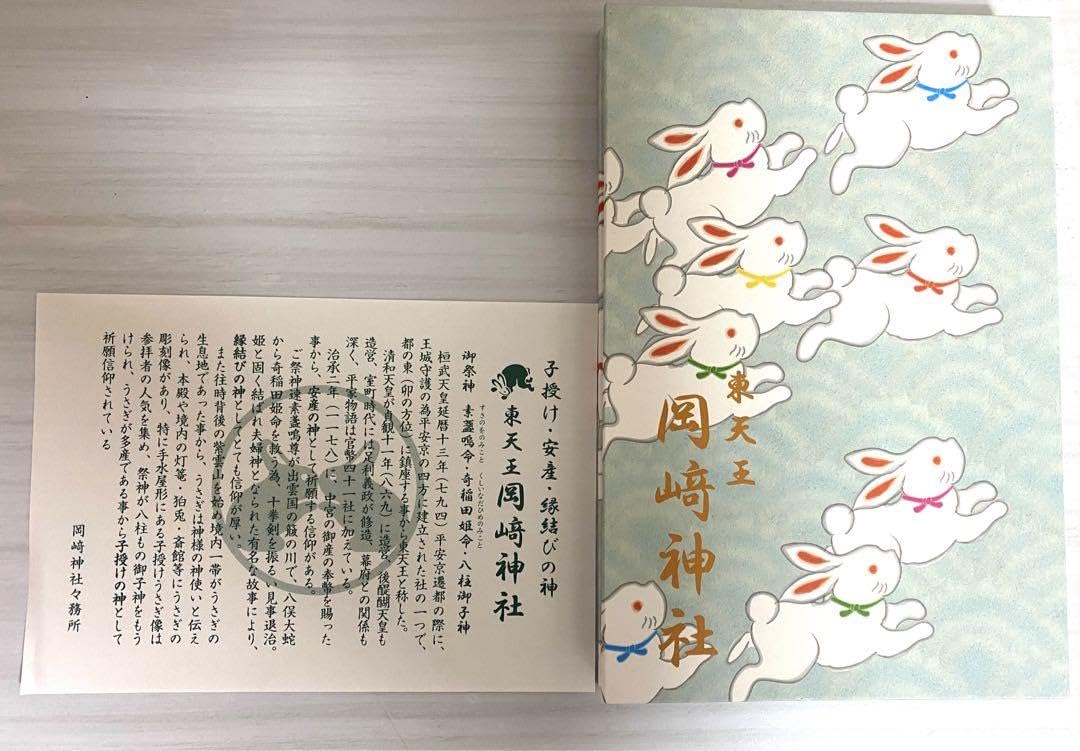 子授け・安産・縁結びの神
東天王岡﨑神社
御祭神　素盞嗚命・奇稲田姫命・八柱御子神
すさのをのみこと　くしいなだひめのみこと
桓武天皇延暦十三年（七九四）平安京遷都の際に、
王城守護の為平安京の四方に建立された社の一つで、
都の東（卯の方位）に鎮座する事から東天王と称した。
清和天皇が貞観十一年（八六九）に造営、後醍醐天皇も
造営、室町時代には足利義政が修造、幕府との関係も
深く、平家物語は官幣四十一社に加えている。
治承二年（一一七八）に、中宮の御産の奉幣を賜った
事から、安産の神として祈願する信仰がある。
ご祭神速素盞嗚尊が出雲国の簸の川で、八俣大蛇
から奇稲田姫命を救う為、十拳剣を振るい見事退治。
姫と固く結ばれ夫婦神となられた有名な故事により、
縁結びの神としてとても信仰が厚い。
また往時背後の紫雲山を始め境内一帯がうさぎの
生息地であった事から、うさぎは神様の神使いと伝え
られ、本殿や境内の灯篭・狛兎・斎館等にうさぎの
彫刻像があり、特に手水屋形にある子授けうさぎ像は
参拝者の人気を集め、祭神が八柱もの御子神をもう
けられ、うさぎが多産である事から子授けの神として
祈願信仰されている
岡﨑神社々務所
東天王
岡﨑神社